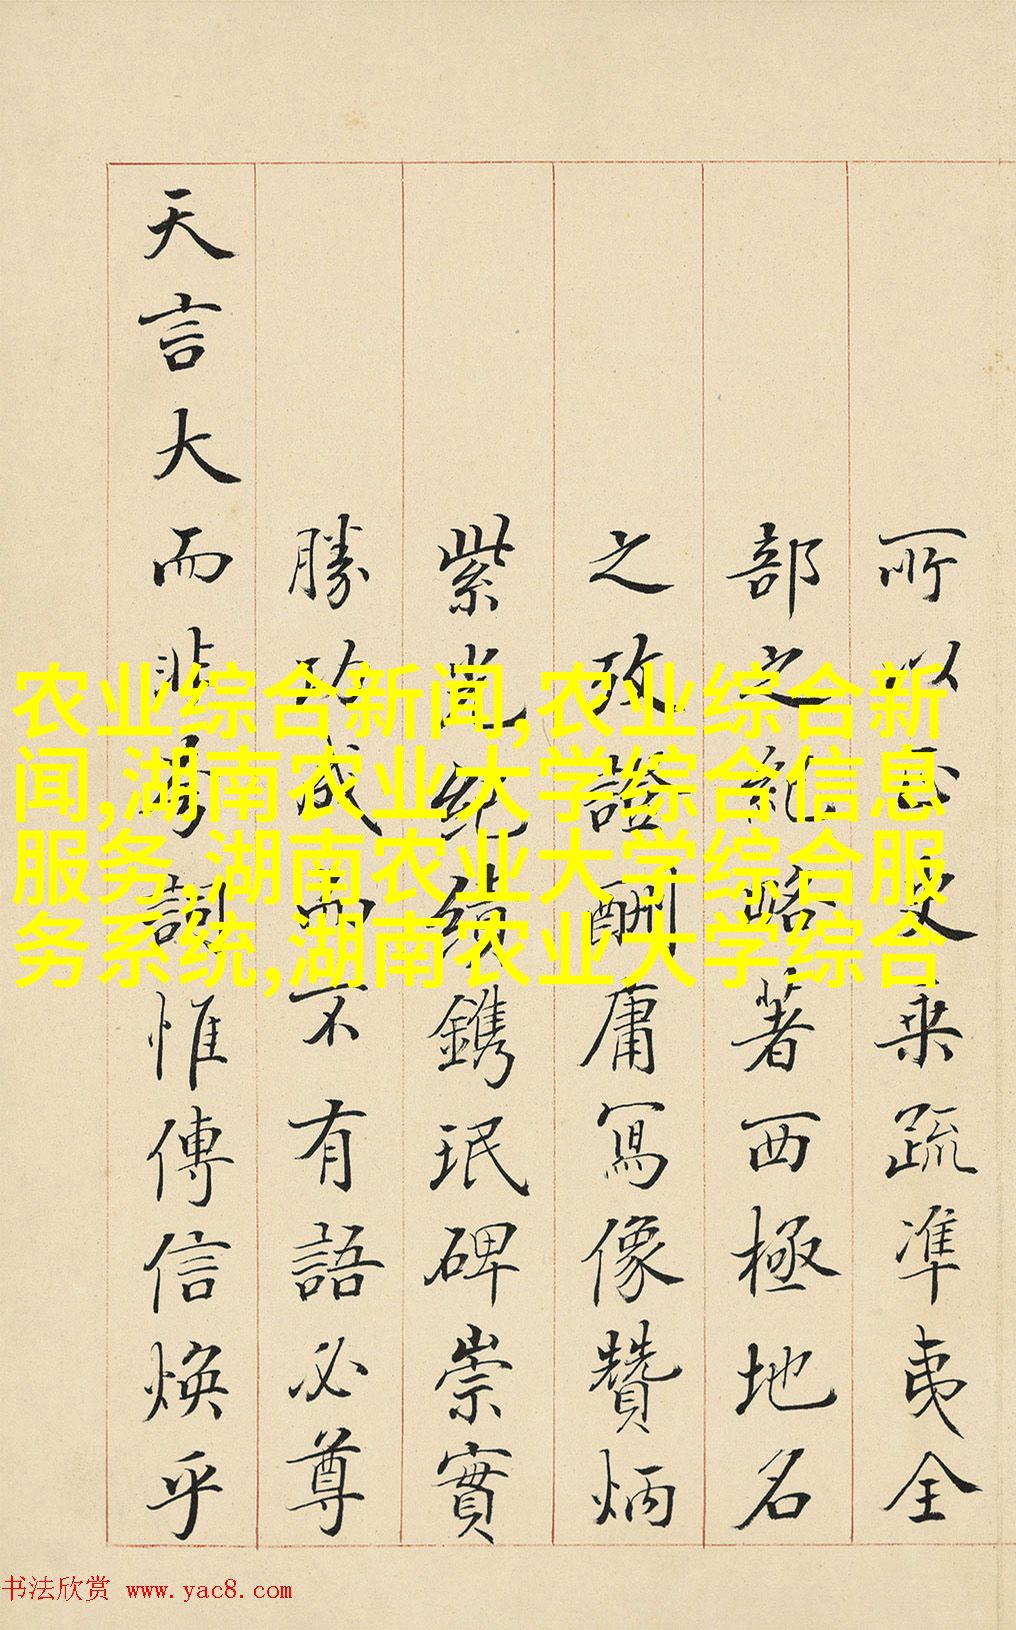 所以乘疏準夷全
部之紀略著西極地名
之攷證酬庸寫像贊炳
紫光紀績鐫珉碑崇實
勝成而不有語必尊
天言大而非夸詞惟傳信煥乎
农业综合新闻,农业综合新
闻,湖南农业大学综合信息
服务,湖南农业大学综合服
务系统,湖南农业大学综合
书法欣赏 www.yac8.com